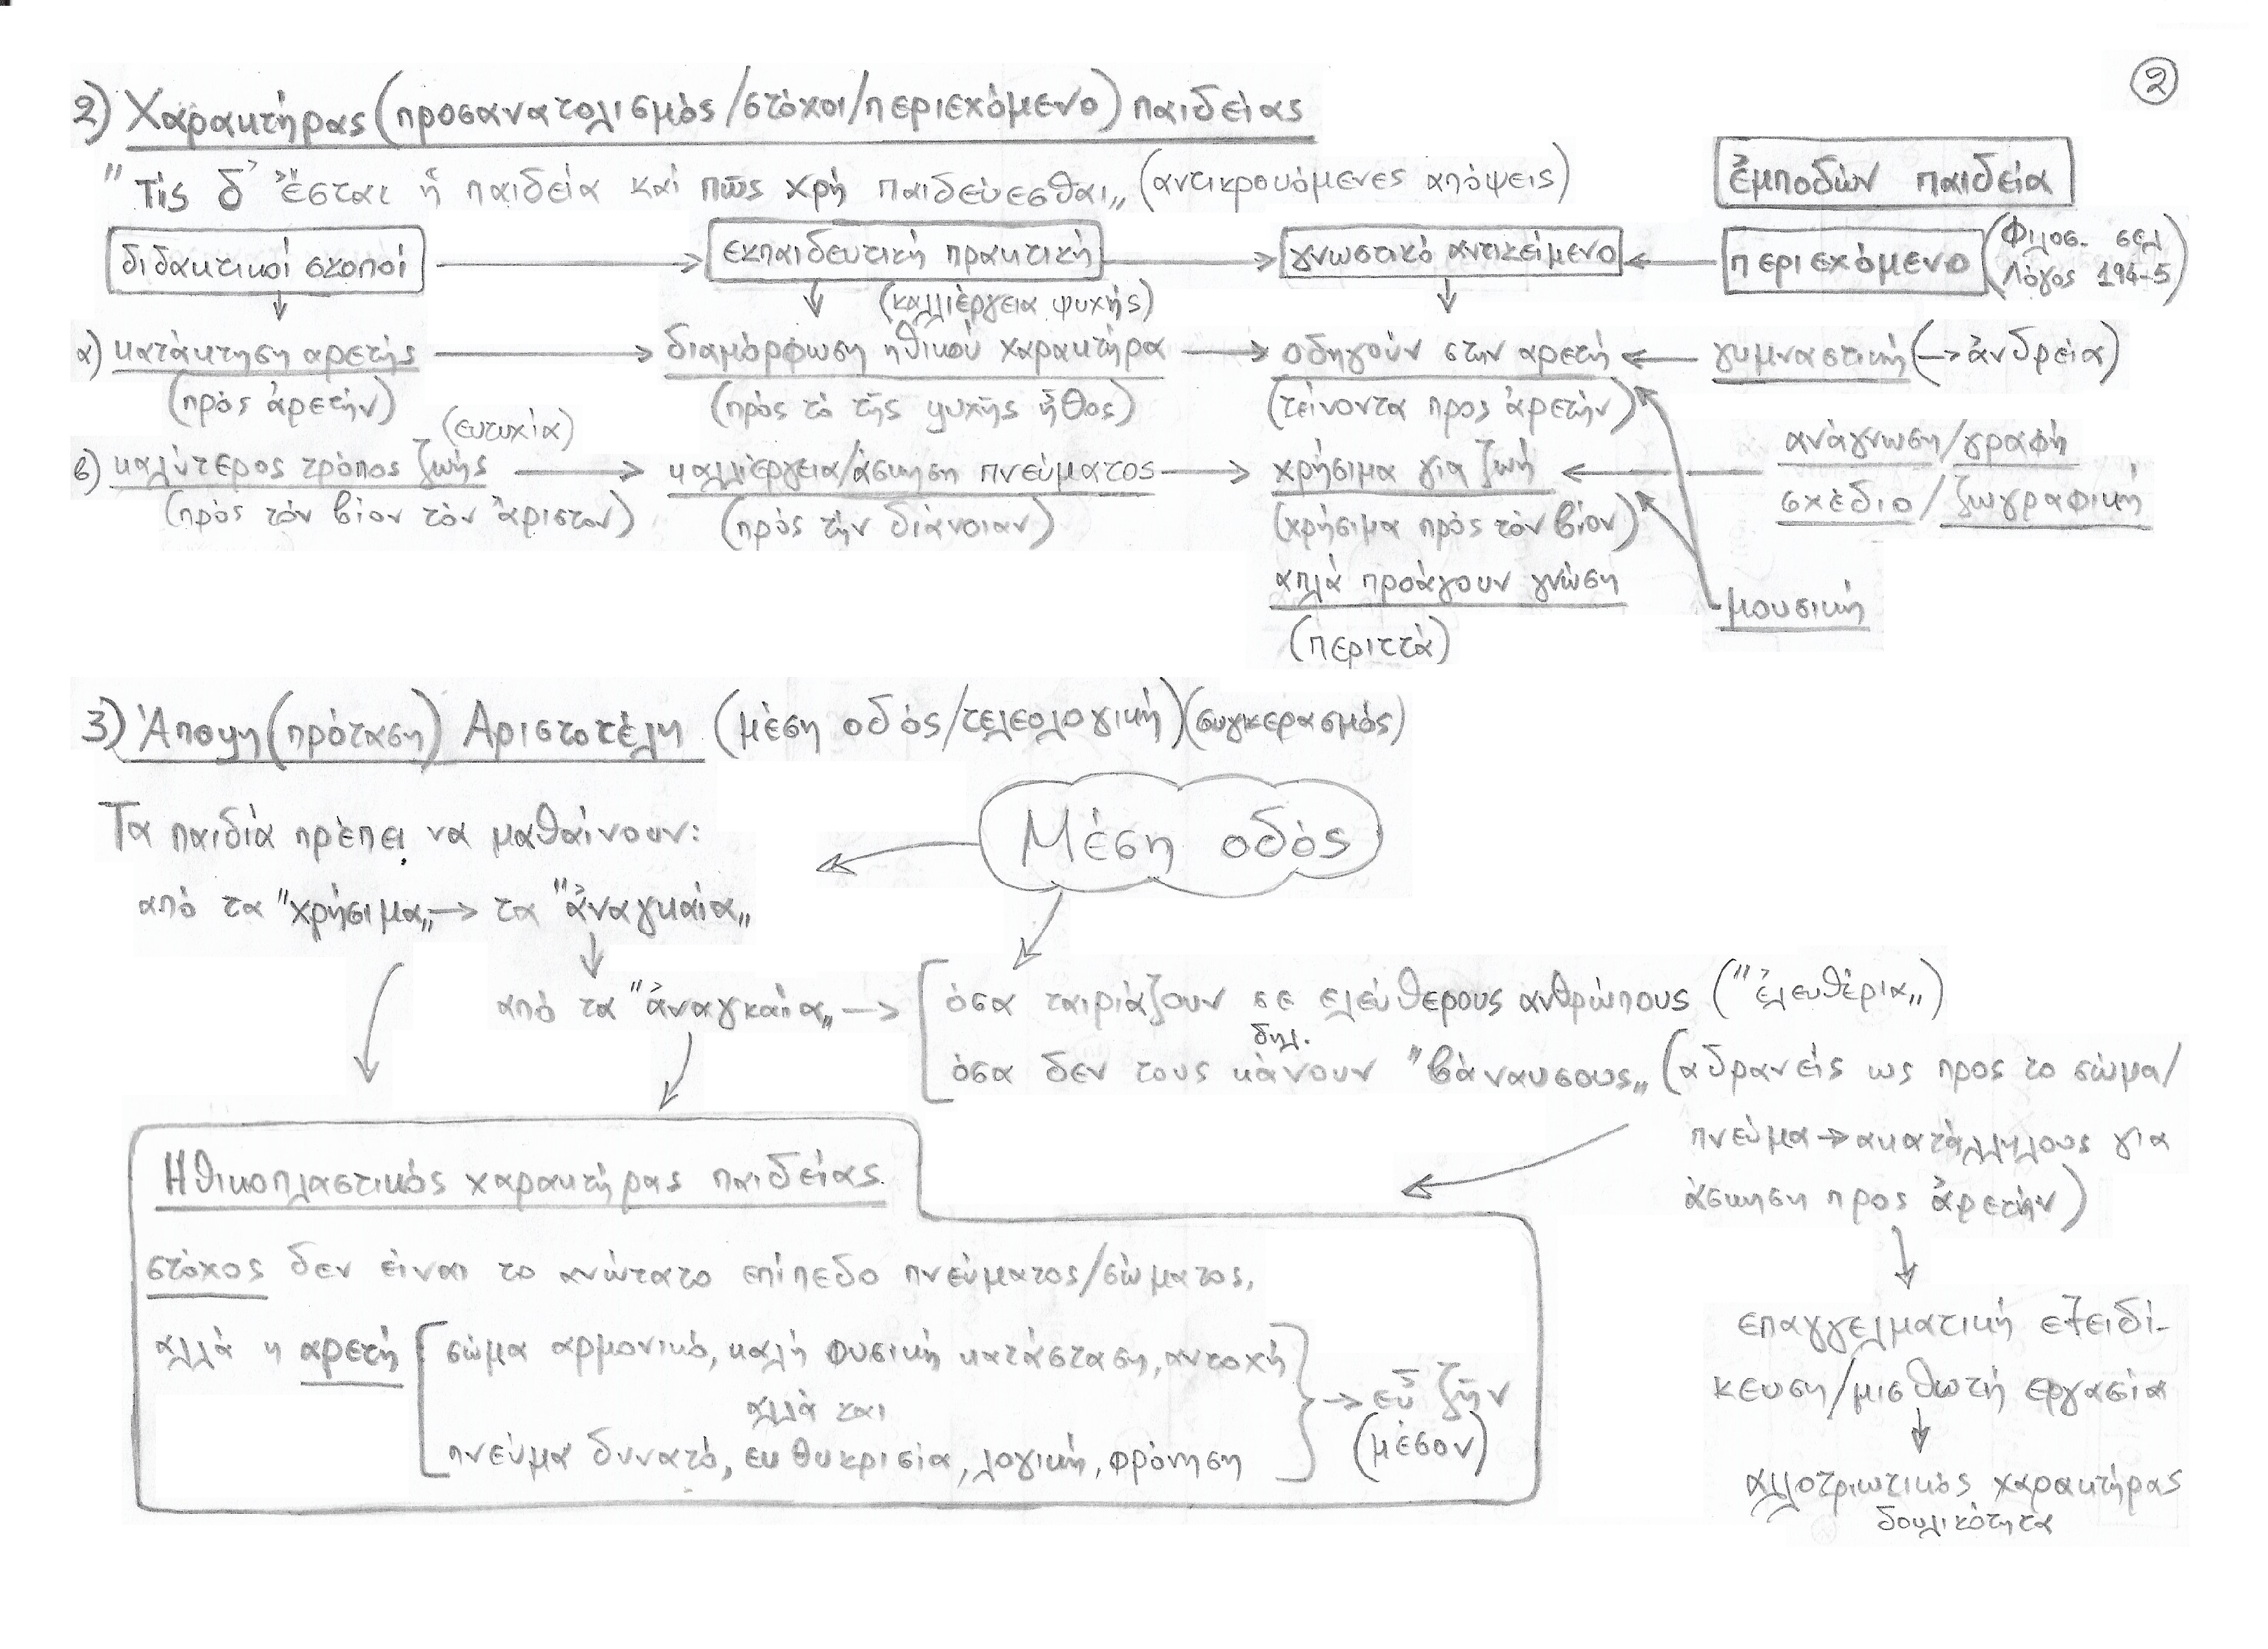 ②
2) Χαρακτήρας (προσανατολισμός/στόχοι/περιεχόμενο) παιδείας
"Τίς δ' ἔσται ἡ παιδεία καί πῶς χρή παιδεύεσθαι„ (αντικρουόμενες απόψεις)
ἐμποδών παιδεία
διδακτικοί σκοποί → εκπαιδευτική πρακτική → γνωστικό αντικείμενο ← περιεχόμενο (Φιλοσ. σελ
Λόγος 194-5)
(καλλιέργεια ψυχής)
α) κατάκτηση αρετής → διαμόρφωση ηθικού χαρακτήρα → οδηγούν στην αρετή ← γυμναστική (→ ἀνδρεία)
(πρός ἀρετήν) (πρός τό τῆς ψυχῆς ἦθος) (τείνοντα προς ἀρετήν)
(ευτυχία)
β) καλύτερος τρόπος ζωής → καλλιέργεια/άσκηση πνεύματος → χρήσιμα για ζωή ← ανάγνωση/γραφή
σχέδιο/ζωγραφική
(πρός τόν βίον τόν ἄριστον) (πρός τήν διάνοιαν) (χρήσιμα πρός τόν βίον)
απλά προάγουν γνώση
μουσική
(περιττά)
3) Άποψη (πρόταση) Αριστοτέλη (μέση οδός/τελεολογική) (συγκερασμός)
Μέση οδός
Τα παιδιά πρέπει να μαθαίνουν:
από τα "χρήσιμα„ → τα "ἀναγκαία„
από τα "ἀναγκαία„ → όσα ταιριάζουν σε ελεύθερους ανθρώπους ("ἐλευθέρια„)
δηλ.
όσα δεν τους κάνουν "βάναυσους„ (αδρανείς ως προς το σώμα/
πνεύμα → ακατάλληλους για
άσκηση προς ἀρετήν)
Ηθικοπλαστικός χαρακτήρας παιδείας
στόχος δεν είναι το ανώτατο επίπεδο πνεύματος/σώματος,
αλλά η αρετή σώμα αρμονικό, καλή φυσική κατάσταση, αντοχή
αλλά και
πνεύμα δυνατό, ευθυκρισία, λογική, φρόνηση
→ εὖ ζῆν
(μέσον)
επαγγελματική εξειδί-
κευση/μισθωτή εργασία
αλλοτριωτικός χαρακτήρας
δουλικότητα